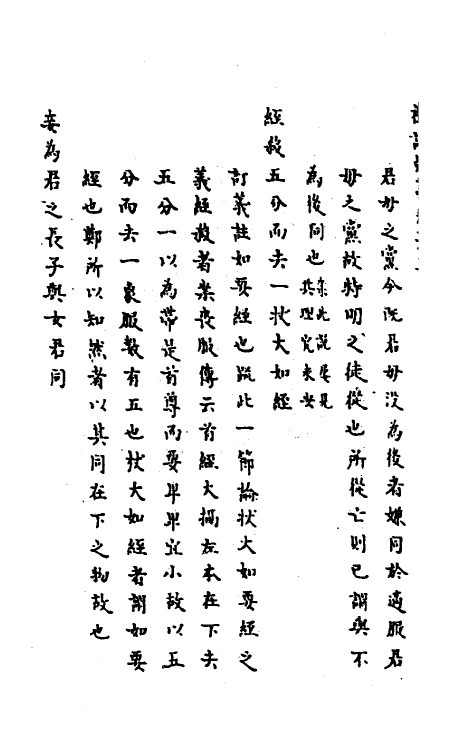 君母之黨今既君母没為後者嫌同於適服君
母之黨故特明之徒從也所從亡則已謂與不
為後同也案此説屡見其理究未安
絰殺五分而去一杖大如絰
訂義註如要絰也疏此一節論杖大如要絰之
義絰殺者案喪服傳云首絰大搹左本在下去
五分一以為帶是首尊而要卑卑宜小故以五
分而去一象服數有五也杖大如絰者謂如要
絰也鄭所以知然者以其同在下之物故也
妾為君之長子與女君同